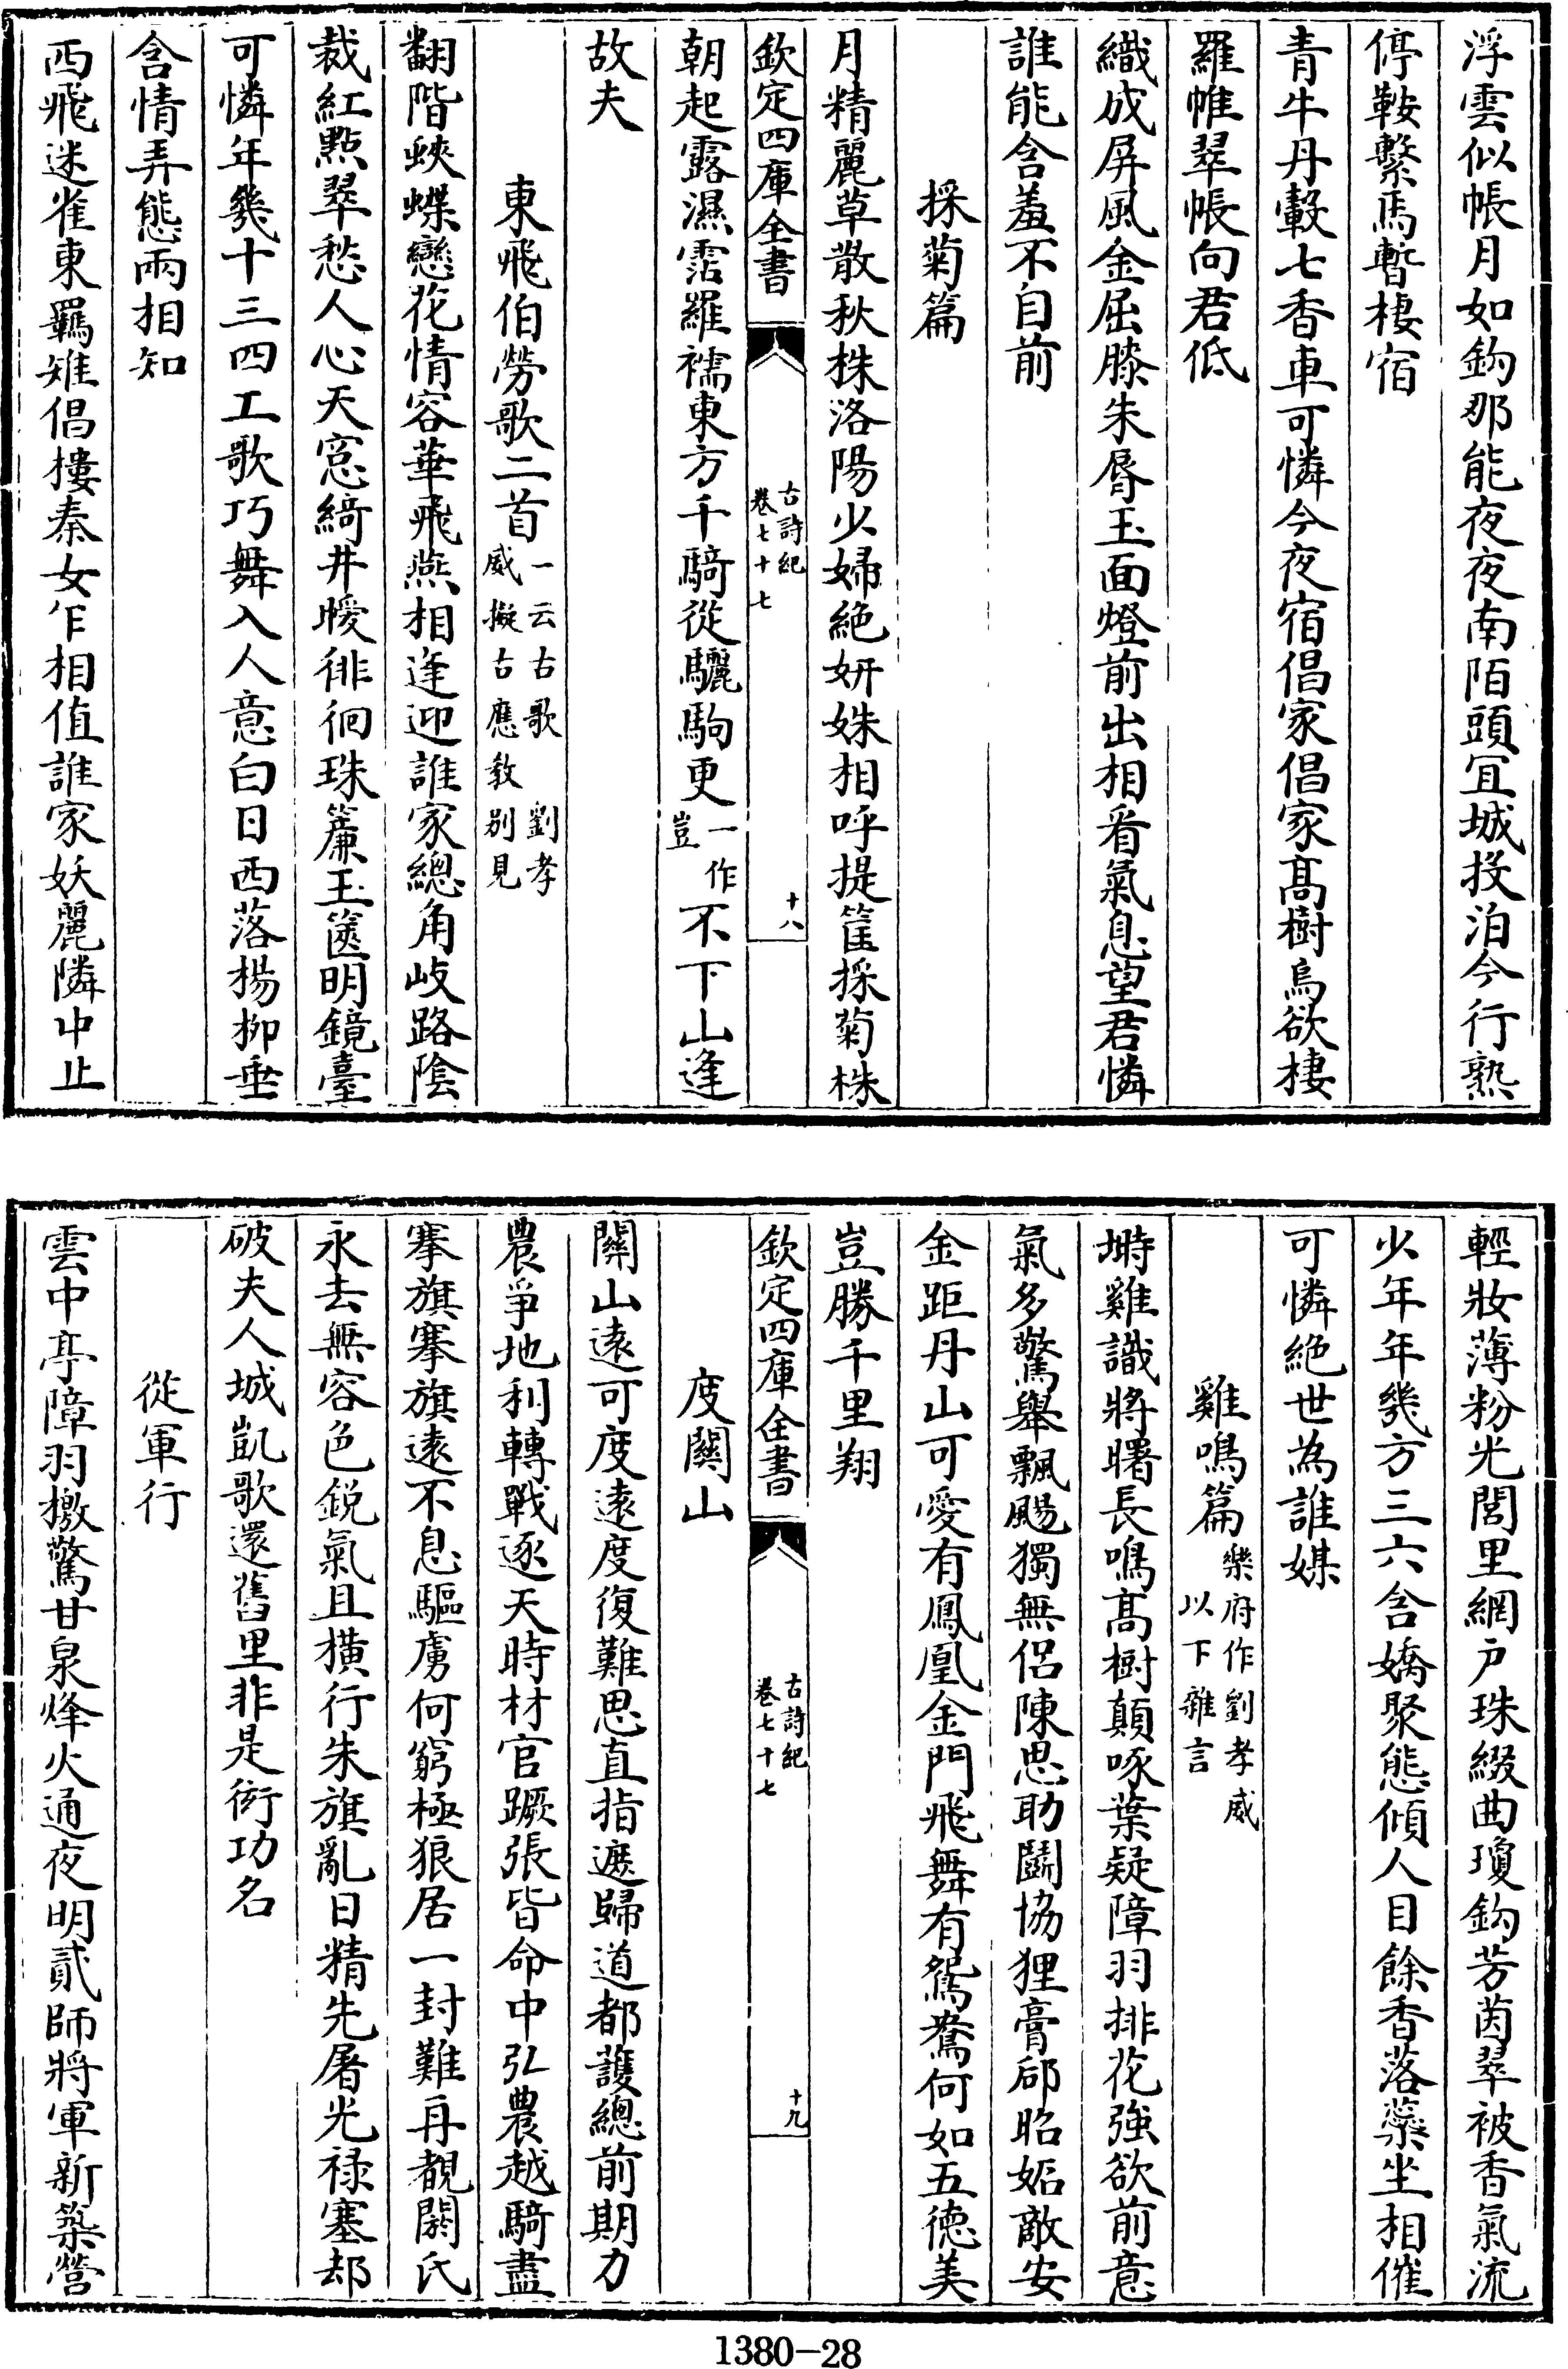 浮雲似帳月如鈎那能夜夜南陌頭冝城投泊今行熟
停鞍繫馬暫棲宿
青牛丹轂七香車可憐今夜宿倡家倡家髙樹烏欲棲
羅帷翠帳向君低
織成屏風金屈膝朱脣玉面燈前出相看氣息望君憐
誰能含羞不自前
採菊篇
月精麗草散秋株洛陽少婦絶妍姝相呼提筐採菊株
欽定四庫全書
古詩紀
卷七十七
十八
朝起露濕霑羅襦東方千騎從驪駒更一作豈不下山逢
故夫
東飛伯勞歌二首一云古歌 劉孝威擬古應敎别見
翻階蛺蝶戀花情容華飛燕相逢迎誰家總角岐路隂
裁紅點翠愁人心天窓綺井曖徘徊珠簾玉篋明鏡臺
可憐年幾十三四工歌巧舞入人意白日西落楊柳垂
含情弄態兩相知
西飛迷雀東羈雉倡樓秦女乍相值誰家妖麗隣中止
輕妝薄粉光閭里網户珠綴曲瓊鈎芳茵翠被香氣流
少年年幾方三六含嬌聚態傾人目餘香落蘂坐相催
可憐絶世為誰媒
雞鳴篇樂府作劉孝威以下雜言
塒雞識將曙長鳴髙樹顛啄葉疑障羽排花強欲前意
氣多驚舉飄颺獨無侣陳思助鬬協狸膏郈昭妬敵安
金距丹山可愛有鳳凰金門飛舞有鴛鴦何如五德美
豈勝千里翔
欽定四庫全書
古詩紀
卷七十七
十九
度關山
關山遠可度遠度復難思直指遮歸道都護總前期力
農爭地利轉戰逐天時材官蹶張皆命中弘農越騎盡
搴旗搴旗遠不息驅虜何窮極狼居一封難再覩閼氏
永去無容色鋭氣且横行朱旗亂日精先屠光禄塞却
破夫人城凱歌還舊里非是衒功名
從軍行
雲中亭障羽檄驚甘泉烽火通夜明貳師將軍新築營
1380-28